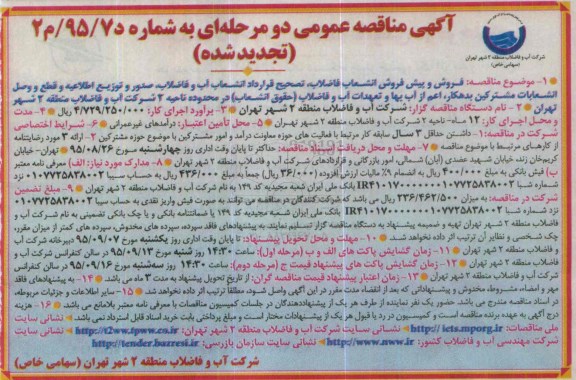 آگهی مناقصه عمومی دو مرحله‌ای به شماره د۹۵/۷/م۲
(تجدید شده)
شرکت آب و فاضلاب منطقه ۲ شهر تهران
(سهامی خاص)
۱- موضوع مناقصه: فروش و پیش فروش انشعاب فاضلاب، تصحیح قرارداد انشعاب آب و فاضلاب، صدور و توزیع اطلاعیه و قطع و وصل
انشعابات مشترکین بدهکار، اعم از آب بها و تعهدات آب و فاضلاب (حقوق انشعاب) در محدوده ناحیه ۳ شرکت آب و فاضلاب منطقه ۲ شهر
تهران ۲- نام دستگاه مناقصه گزار: شرکت آب و فاضلاب منطقه ۲ شهر تهران ۳- برآورد اجرای کار: ۴/۷۲۹/۲۵۰/۰۰۰ ریال ۴- مدت
و محل اجرای کار: ۱۲ ماه- ناحیه ۳ شرکت آب و فاضلاب منطقه ۲ شهر تهران ۵- محل تأمین اعتبار: درآمدهای غیرعمرانی ۶- شرایط اختصاصی
شرکت در مناقصه: ۱- داشتن حداقل ۳ سال سابقه کار مرتبط با فعالیت های حوزه معاونت درآمد و امور مشترکین یا موضوع حوزه مشترکین ۲- ارائه ۳ مورد رضایتنامه
از کارهای مرتبط با موضوع مناقصه ۷- مهلت و محل دریافت اسناد مناقصه: حداکثر تا پایان وقت اداری روز چهارشنبه مورخ ۹۵/۰۸/۲۶ تهران- خیابان
کریم‌خان زند، خیابان شهید عضدی (آبان شمالی)، امور بازرگانی و قراردادهای شرکت آب و فاضلاب منطقه ۲ شهر تهران ۸- مدارک مورد نیاز: الف) معرفی نامه معتبر
ب) فیش بانکی به مبلغ ۴۰۰/۰۰۰ ریال به انضمام ۹٪ مالیات ارزش افزوده (۳۶/۰۰۰ ریال) جمعاً به مبلغ ۴۳۶/۰۰۰ ریال به حساب سیبا ۰۱۰۷۷۲۵۸۳۸۰۰۲ نزد
شماره شبا IR۴۱۰۱۷۰۰۰۰۰۰۰۱۰۷۷۲۵۸۳۸۰۰۲ بانک ملی ایران شعبه مجیدیه کد ۱۴۹ به نام شرکت آب و فاضلاب منطقه ۲ شهر تهران ۹- مبلغ تضمین
شرکت در مناقصه: به میزان ۲۳۶/۴۶۲/۵۰۰ ریال می باشد که شرکت کنندگان در مناقصه می توانند به صورت فیش واریز نقدی به حساب سیبا ۰۱۰۷۷۲۵۸۳۸۰۰۲
نزد شماره شبا IR۴۱۰۱۷۰۰۰۰۰۰۰۱۰۷۷۲۵۸۳۸۰۰۲ بانک ملی ایران شعبه مجیدیه کد ۱۴۹ یا ضمانتنامه بانکی و یا چک بانکی تضمینی به نام شرکت آب و
فاضلاب منطقه ۲ شهر تهران تهیه و ضمیمه پیشنهاد به دستگاه مناقصه گزار تسلیم نمایند به پیشنهادهای فاقد سپرده، سپرده های مخدوش، سپرده های کمتر از میزان مقرر،
چک شخصی و نظایر آن ترتیب اثر داده نخواهد شد. ۱۰- مهلت و محل تحویل پیشنهاد: تا پایان وقت اداری روز یکشنبه مورخ ۹۵/۰۹/۰۷ دبیرخانه شرکت آب
و فاضلاب منطقه ۲ شهر تهران ۱۱- زمان گشایش پاکت های الف و ب (مرحله اول): ساعت ۱۴:۳۰ روز شنبه مورخ ۹۵/۰۹/۱۳ در سالن کنفرانس شرکت آب و
فاضلاب منطقه ۲ شهر تهران ۱۲- زمان گشایش پاکت های پیشنهاد قیمت ج (مرحله دوم): ساعت ۱۴:۳۰ روز سه شنبه مورخ ۹۵/۰۹/۱۶ در سالن کنفرانس
شرکت آب و فاضلاب منطقه ۲ شهر تهران ۱۳- زمان اعتبار پیشنهاد قیمت مناقصه گران: از تاریخ تحویل پیشنهاد به مدت ۳ ماه می باشد ۱۴- به پیشنهادهای فاقد
مهر و امضاء، مشروط، مخدوش و پیشنهاداتی که بعد از انقضاء مدت مقرر در این آگهی واصل شود، مطلقاً ترتیب اثر داده نخواهد شد. ۱۵- سایر اطلاعات و جزئیات مربوطه،
در اسناد مناقصه مندرج می باشد. حضور یک نفر نماینده از طرف هر یک از پیشنهاددهندگان در جلسات کمیسیون مناقصات با معرفی نامه معتبر بلامانع می باشد. ۱۶- هزینه
درج آگهی به عهده برنده مناقصه است و کمیسیون در رد یا قبول هر یک از پیشنهادات مختار است و مبلغ پرداختی بابت خرید اسناد قابل استرداد نمی باشد.
ملی مناقصات: http://iets.mporg.ir نشانی سایت شرکت آب و فاضلاب منطقه ۲ شهر تهران: http://t2ww.tpww.co.ir نشانی سایت
شرکت مهندسی آب و فاضلاب کشور: http://www.nww.ir نشانی سایت سازمان بازرسی: http://tender.bazresi.ir
شرکت آب و فاضلاب منطقه ۲ شهر تهران (سهامی خاص)